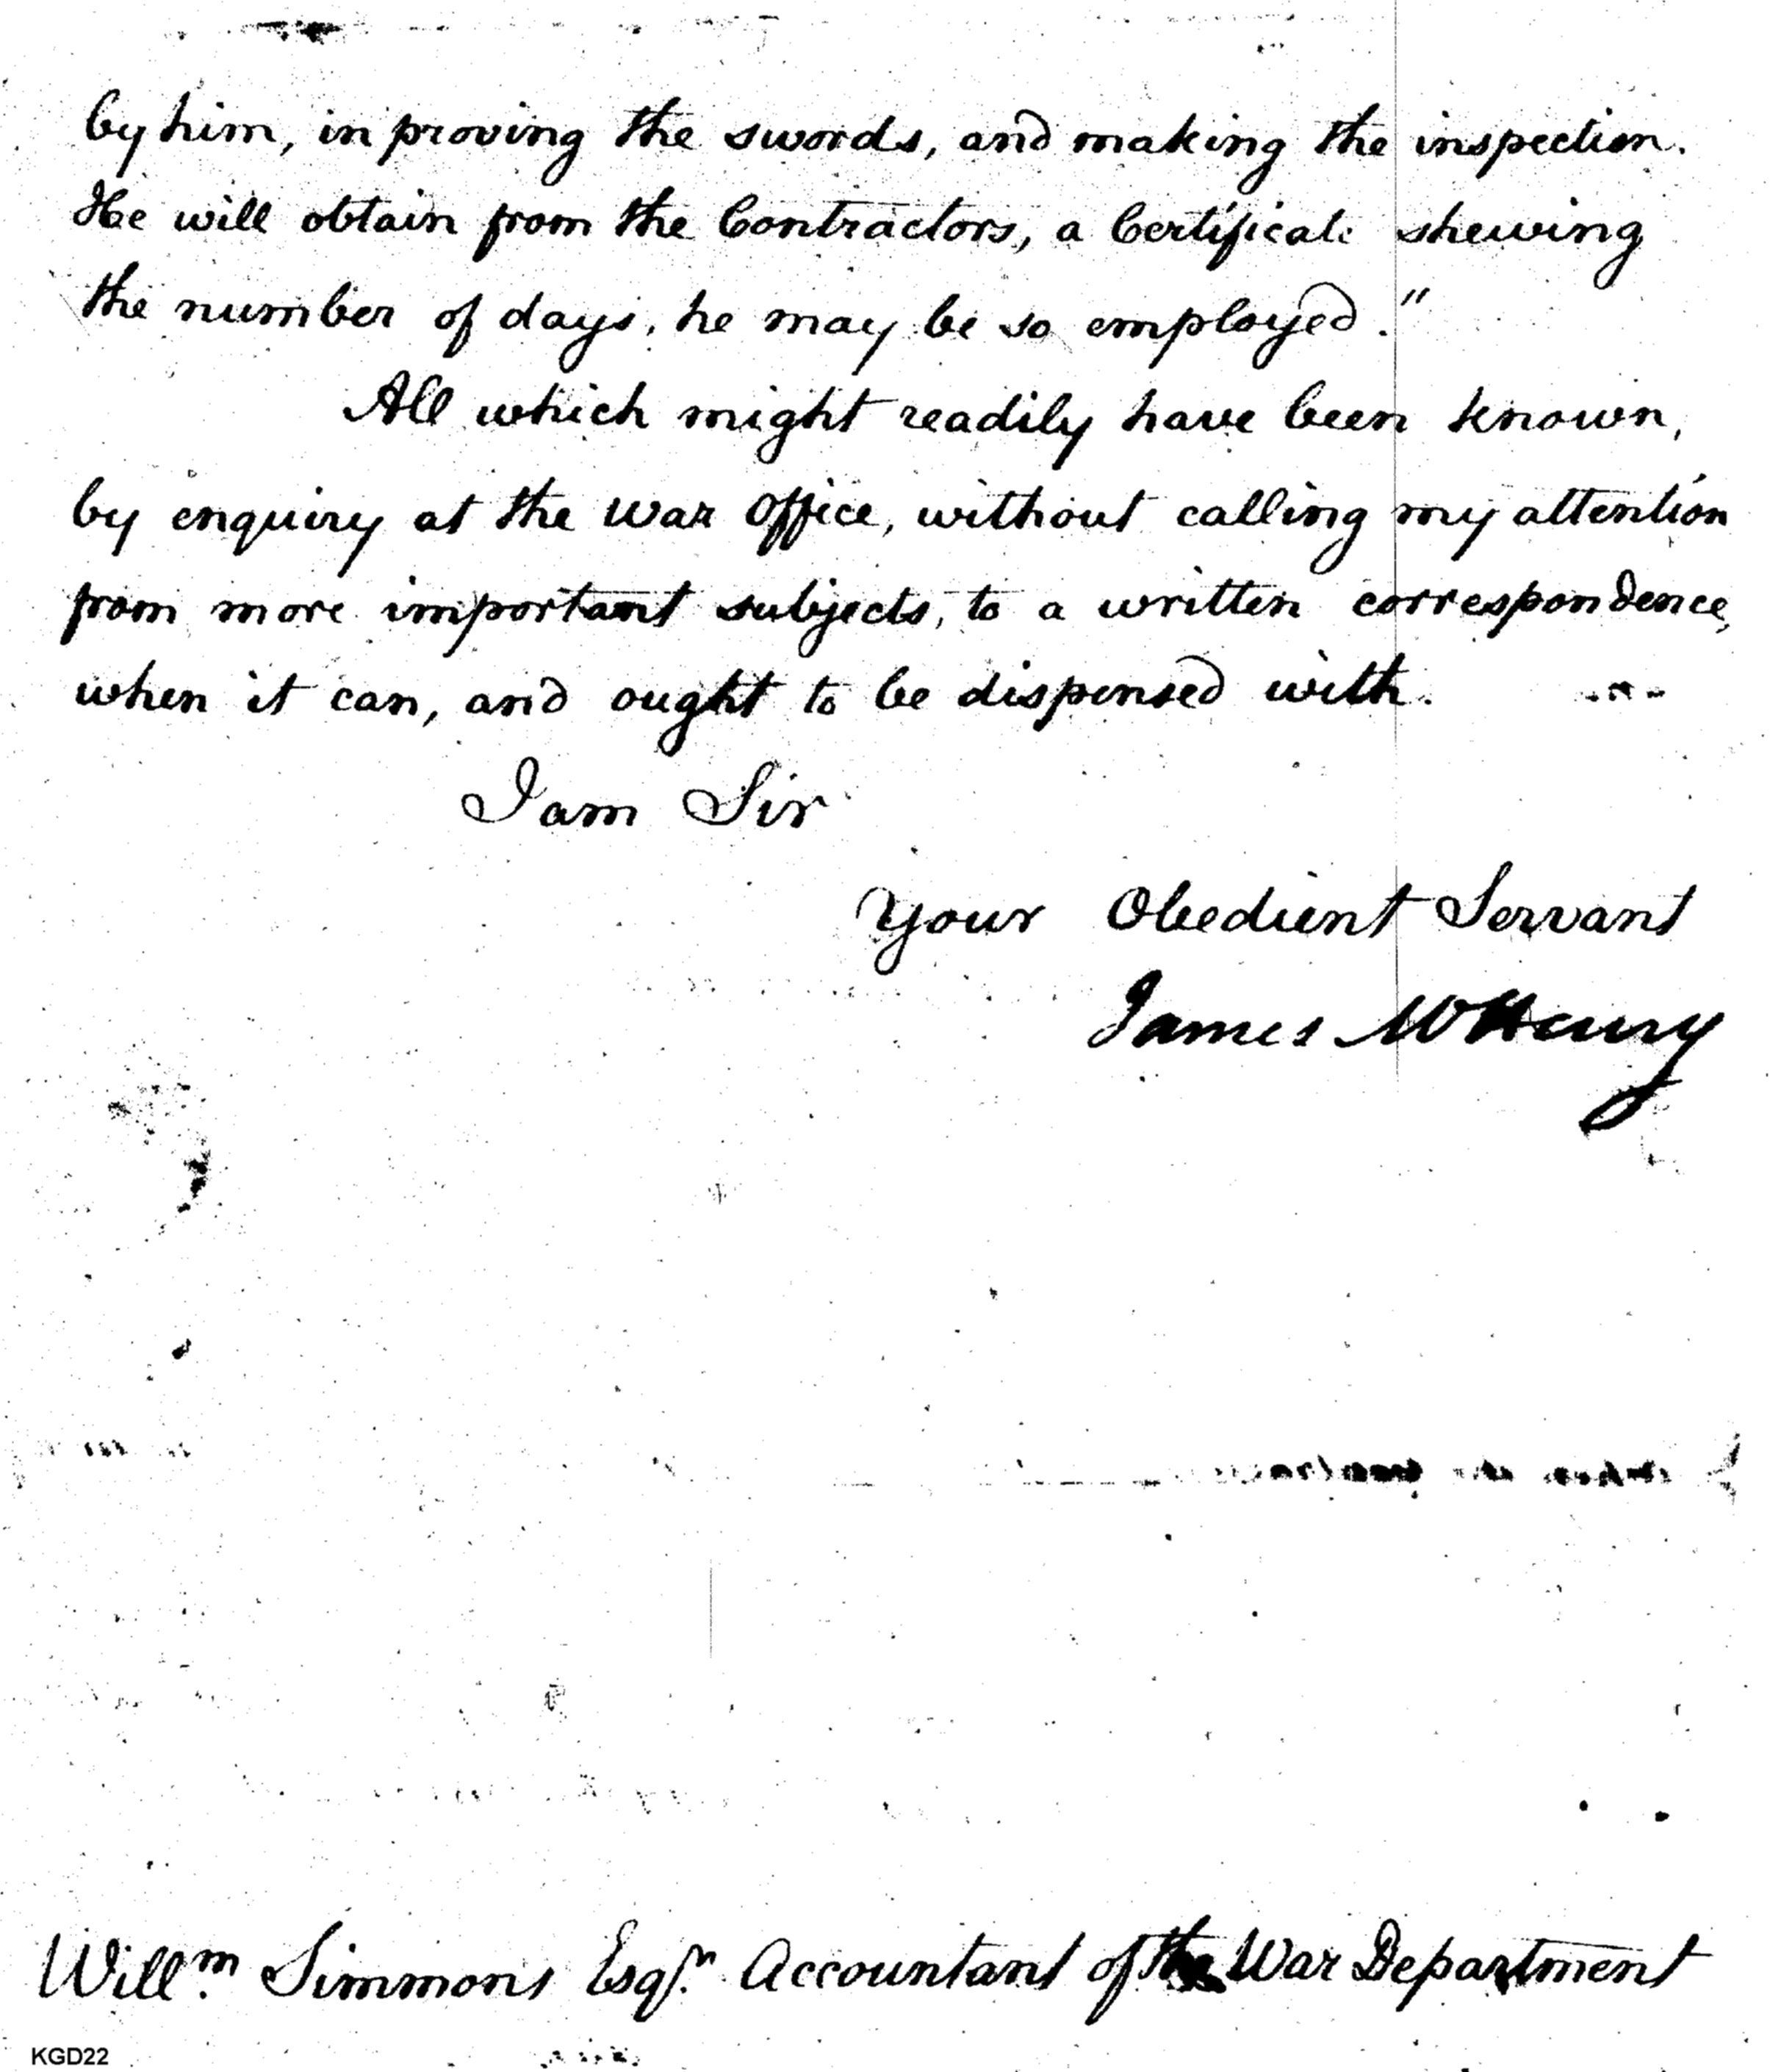 by him, in proving the swords, and making the inspection.
He will obtain from the Contractors, a Certificate shewing
the number of days, he may be so employed."
All which might readily have been known,
by enquiry at the War Office, without calling my attention
from more important subjects, to a written correspondence,
when it can, and ought to be dispensed with.
I am Sir
Your Obedient Servant
James McHenry
Willm. Simmons Esqr. Accountant of the War Department
KGD22